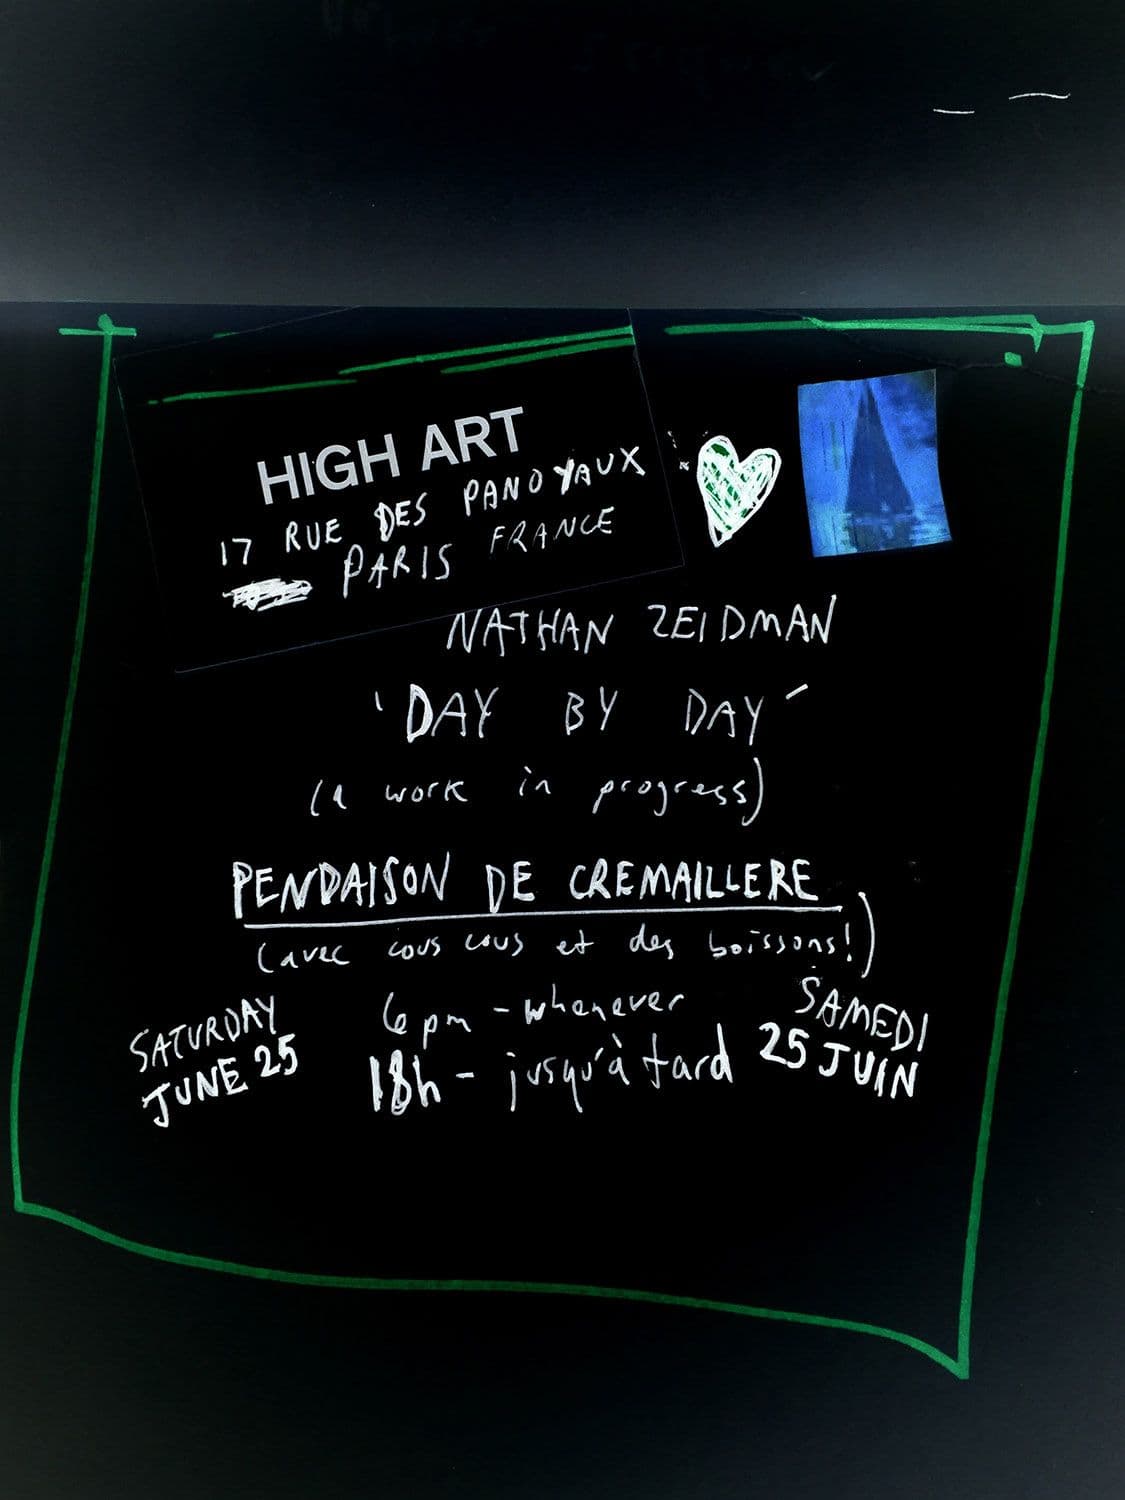 HIGH ART
17 RUE DES PANOYAUX
PARIS FRANCE
NATHAN ZEIDMAN
'DAY BY DAY'
(a work in progress)
PENDAISON DE CREMAILLERE
(avec cous cous et des boissons!)
SATURDAY
JUNE 25
6pm - whenever
18h - jusqu'à tard
SAMEDI
25 JUIN